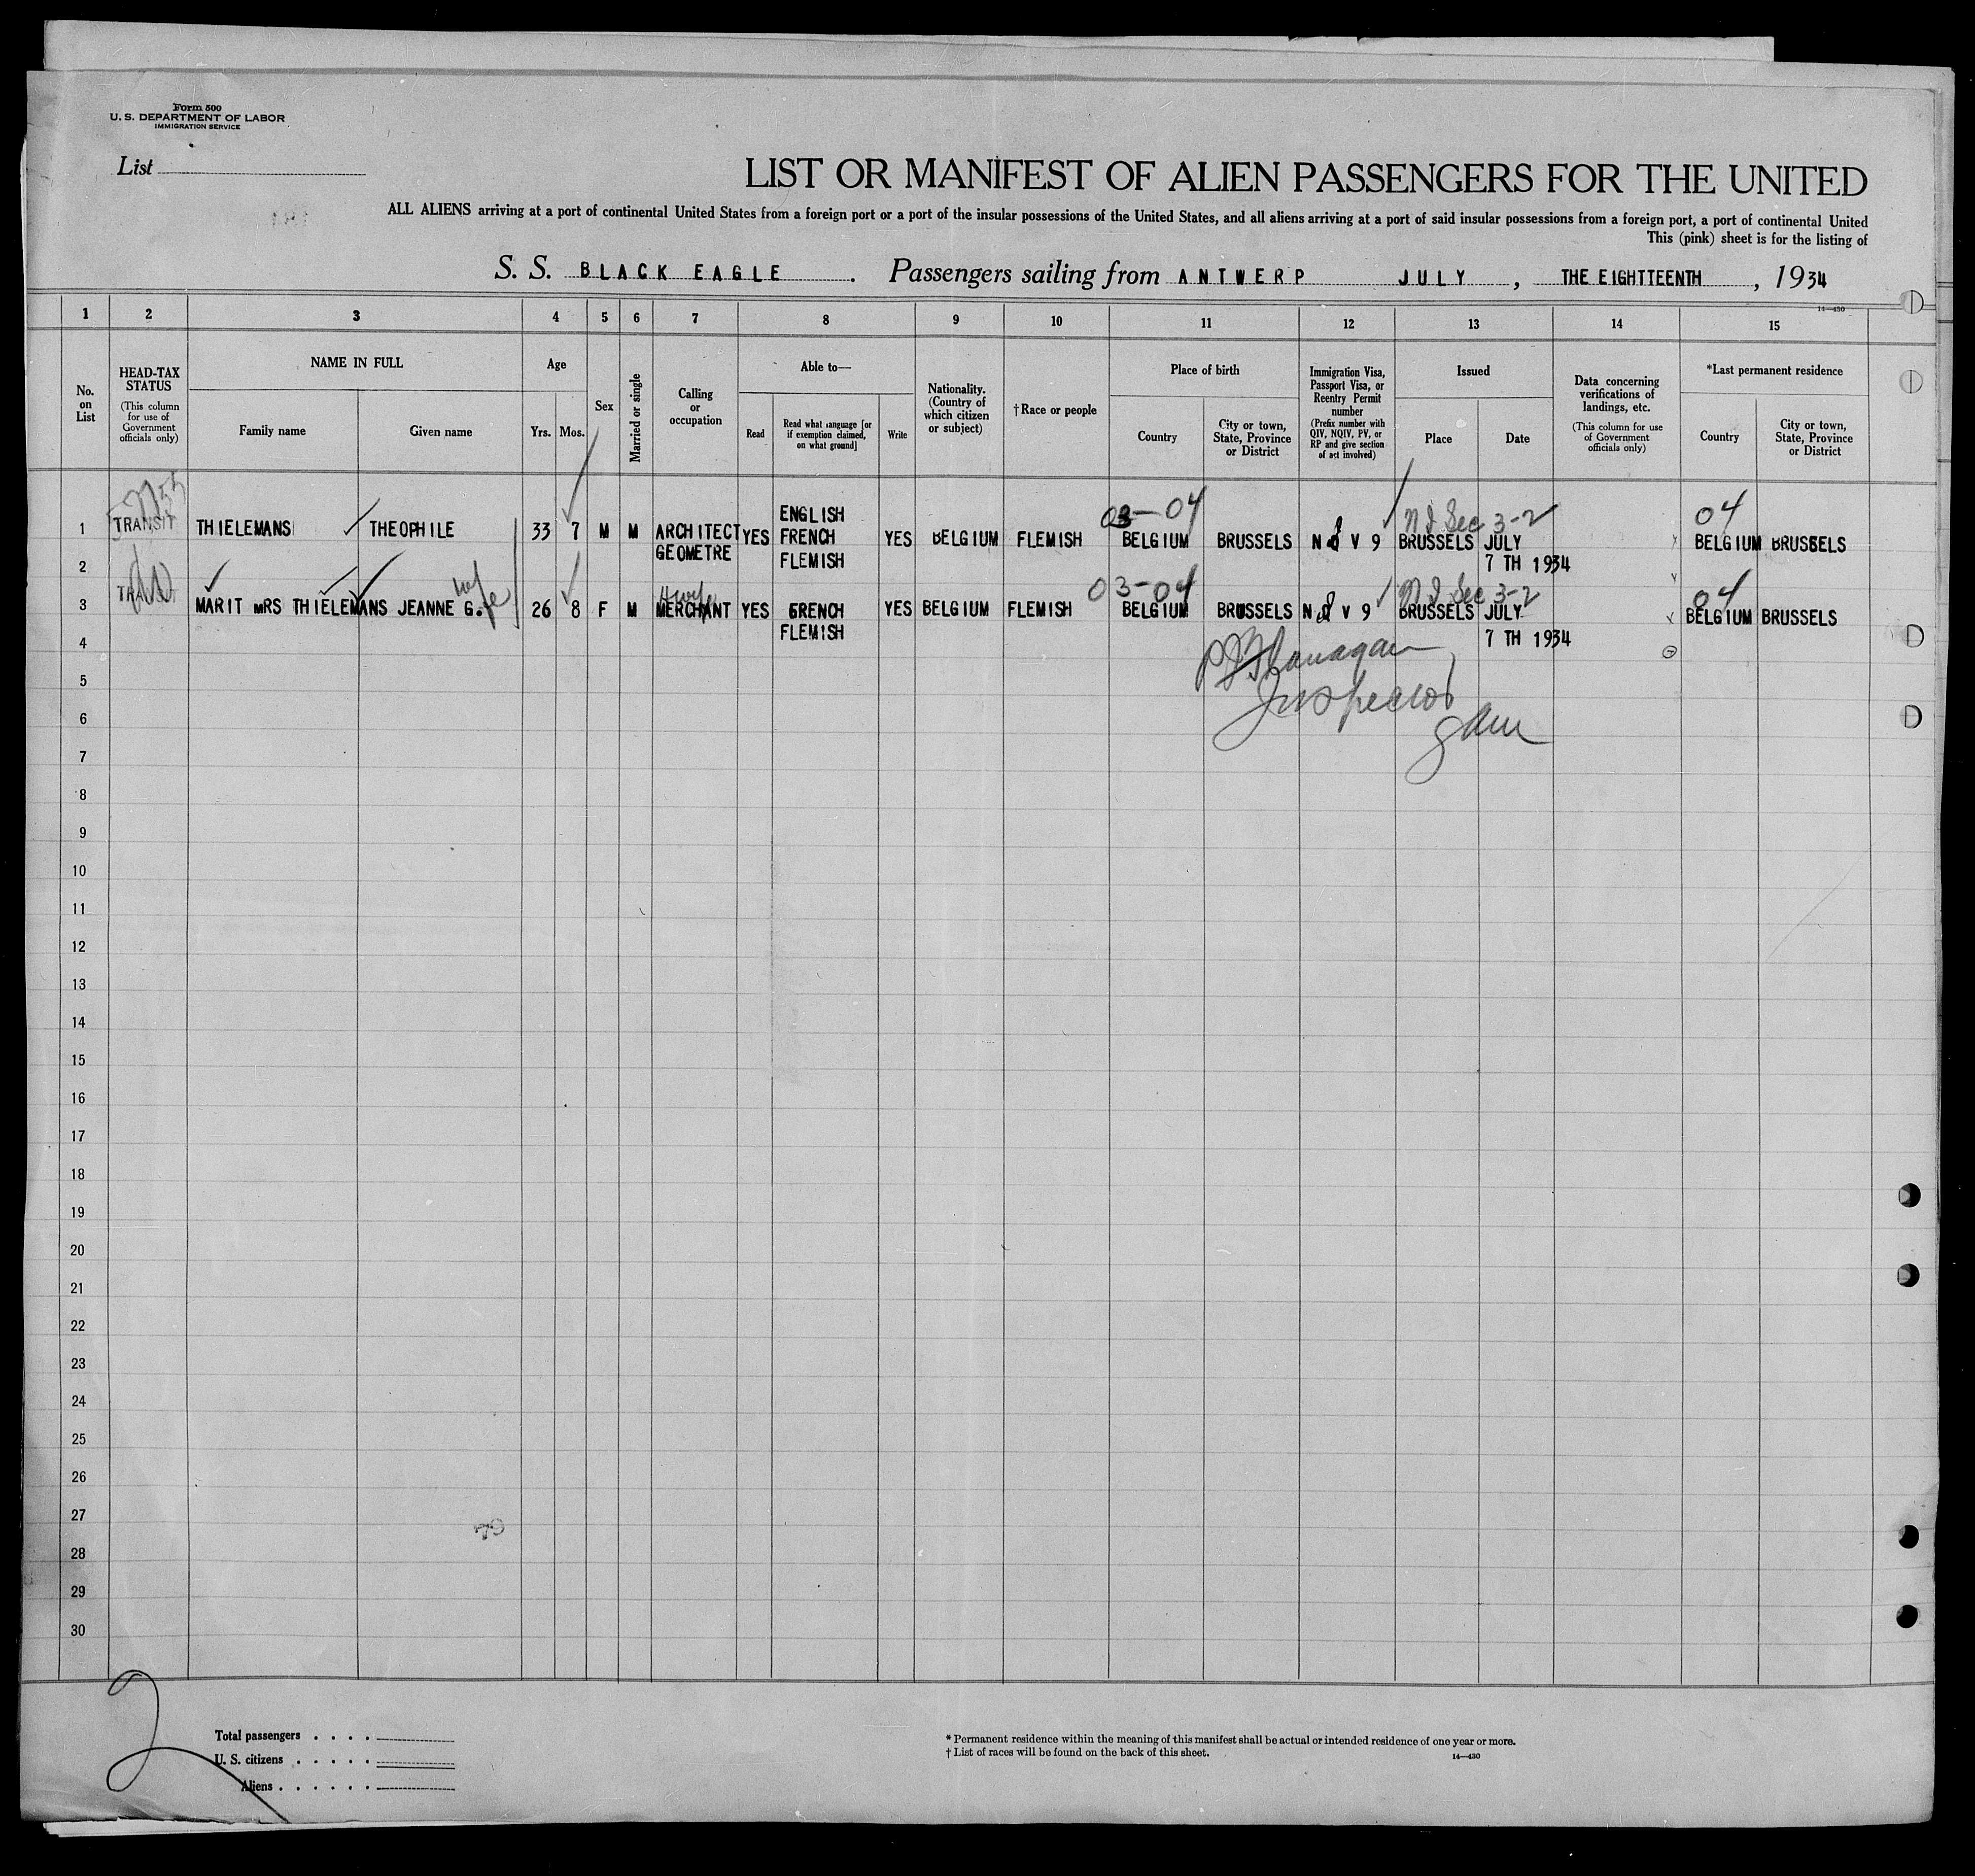 Form 500
U. S. DEPARTMENT OF LABOR
IMMIGRATION SERVICE
List
LIST OR MANIFEST OF ALIEN PASSENGERS FOR THE UNITED
ALL ALIENS arriving at a port of continental United States from a foreign port or a port of the insular possessions of the United States, and all aliens arriving at a port of said insular possessions from a foreign port, a port of continental United
This (pink) sheet is for the listing of
S. S. BLACK EAGLE. Passengers sailing from ANTWERP JULY, THE EIGHTTEENTH, 1934
14—430
1 2 3 4 5 6 7 8 9 10 11 12 13 14 15
No. on List
HEAD-TAX STATUS
(This column for use of Government officials only)
NAME IN FULL
Family name
Given name
Age
Yrs.
Mos.
Sex
Married or single
Calling or occupation
Able to—
Read
Read what language [or if exemption claimed, on what ground]
Write
Nationality. (Country of which citizen or subject)
†Race or people
Place of birth
Country
City or town, State, Province or District
Immigration Visa, Passport Visa, or Reentry Permit number
(Prefix number with QIV, NQIV, PV, or RP and give section of act involved)
Issued
Place
Date
Data concerning verifications of landings, etc.
(This column for use of Government officials only)
*Last permanent residence
Country
City or town, State, Province or District
03-04 N I Sec 3-2 04
1 TRANSIT THIELEMANS THEOPHILE 33 7 M M ARCHITECT GEOMETRE YES ENGLISH FRENCH FLEMISH YES BELGIUM FLEMISH BELGIUM BRUSSELS V 9 BRUSSELS JULY 7 TH 1934 BELGIUM BRUSSELS
2
wife Hwife 03-04 N I Sec 3-2 04
3 TRANSIT MARIT MRS THIELEMANS JEANNE G. 26 8 F M MERCHANT YES FRENCH FLEMISH YES BELGIUM FLEMISH BELGIUM BRUSSELS V 9 BRUSSELS JULY 7 TH 1934 BELGIUM BRUSSELS
4
Flanagan
5
Inspector
6
7
8
9
10
11
12
13
14
15
16
17
18
19
20
21
22
23
24
25
26
27
28
29
30
2
Total passengers
U. S. citizens
Aliens
* Permanent residence within the meaning of this manifest shall be actual or intended residence of one year or more.
† List of races will be found on the back of this sheet.
14—430